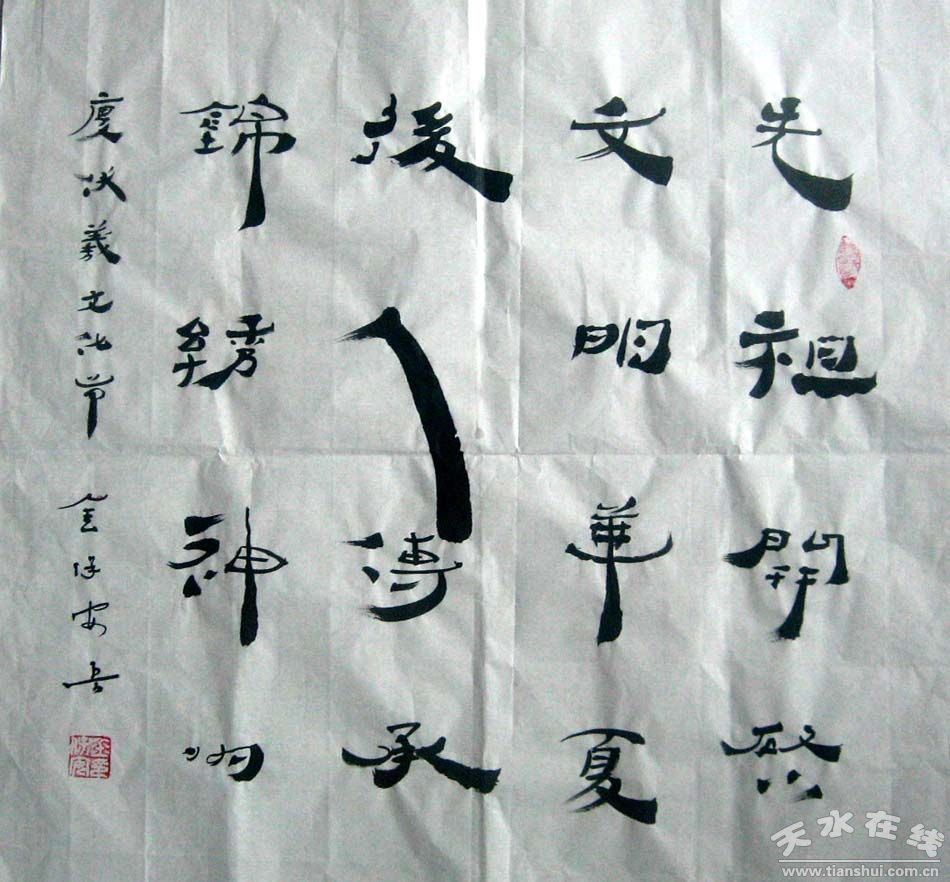 先祖開啓
文明華夏
後人傳承
錦繡神州
慶伏羲文化節 金保安书
天水在线
www.tianshui.com.cn